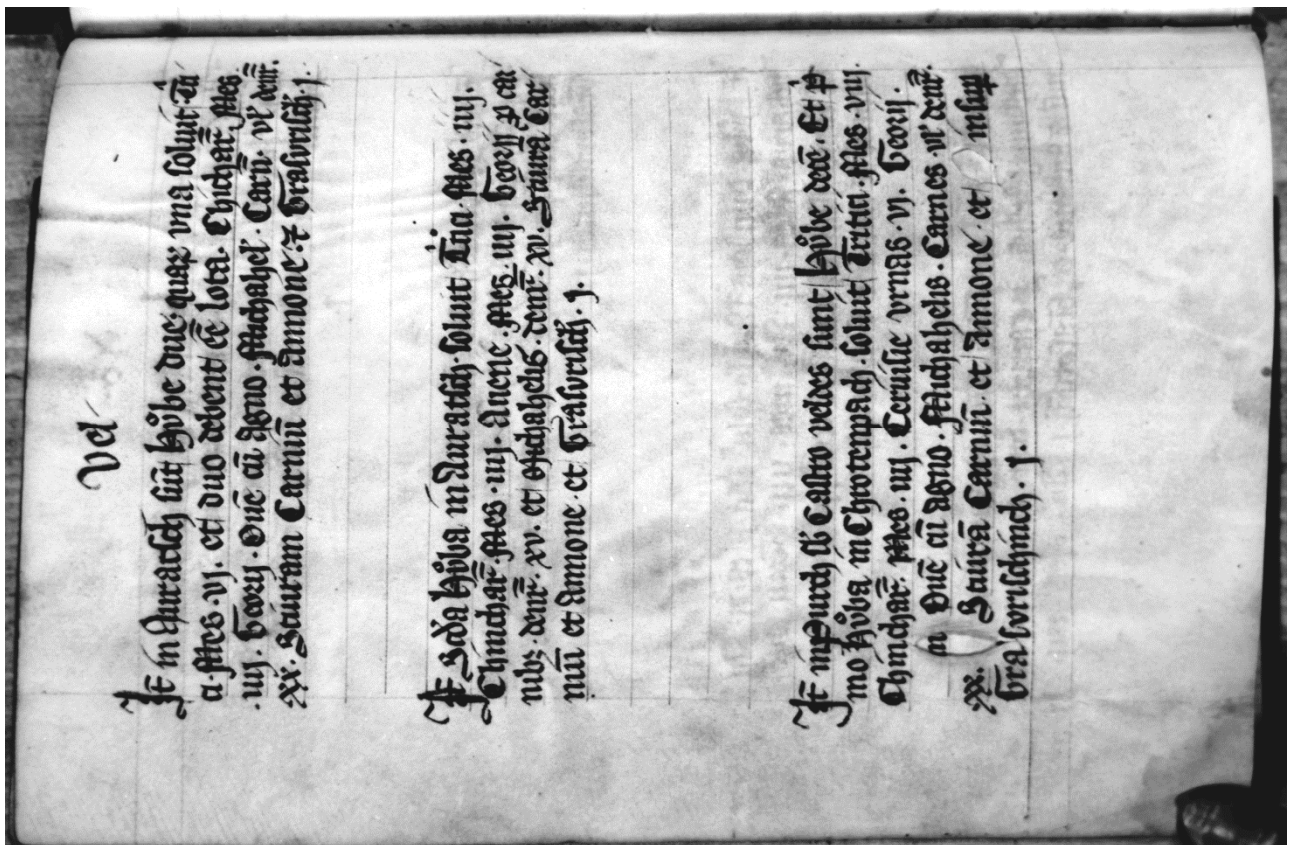 Vel
It in Auratsch sūt hůbe due quaꝝ vna soluit Tri
ci Mes· vj· et duo debent eē loca· Chichař Mes
·iiij· Georij· Ouē cū agno· Michahel· Carn̄· vl' denř·
xx· Scuram Carniū et Annone· ⁊ Grasvrisch· j·
It Scd'a hůba in Auratsch· soluit Tři Mes· iiij·
Chinchař· Mes· iiij· Auene· Mes· iiij· Georij ꝓ car
nibꝫ· denř· xv· et Michahelis· denř· xv· Scura Car
niū et Annone· et Grasvrisch· j·
It in purch sb Castro veldes sunt hůbe decē· Et p̄
mo hůba in Chrotenpach· soluit Tritici· Mes· viij·
Chinchař· Mes· iiij· Ceruisie vrnas· vj· Georij·
Ouē cū agno· Michahelis· Carnes· vl' denř·
xx· Scurā Carniū· et Annone· et insuꝑ
Gra svrischinch· j·